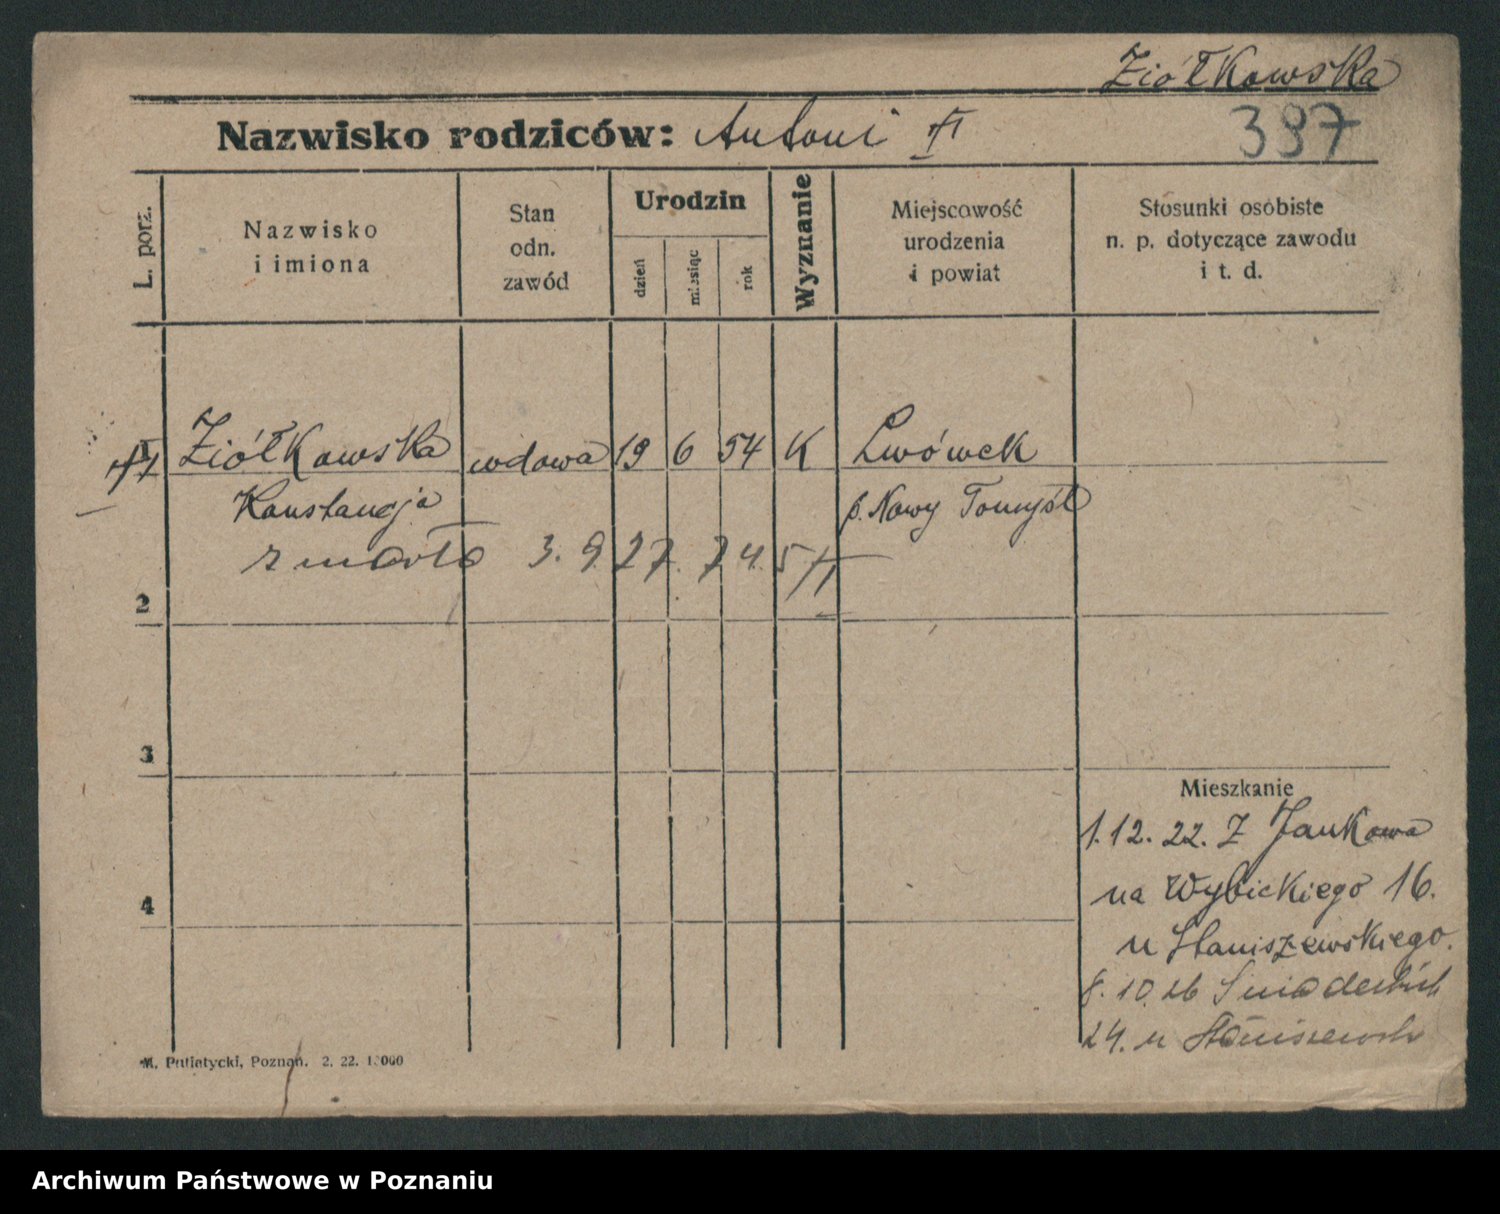 Ziółkowska
Nazwisko rodziców: Antoni
397
L. porz.
Nazwisko
i imiona
Stan
odn.
zawód
Urodzin
dzień
miesiąc
rok
Wyznanie
Miejscowość
urodzenia
i powiat
Stosunki osobiste
n. p. dotyczące zawodu
i t. d.
Ziółkowska wdowa 19 6 54 K Lwówek
Konstancja p. Nowy Tomyśl
zmarła 3. 9. 27. 74.
2
3
4
Mieszkanie
1.12.22. Z Jankowa
na Wybickiego 16.
u Staniszewskiego.
8.10.26 Śniadeckich
24. u Staniszewsk
M. Putiatycki, Poznań. 2. 22. 13000
Archiwum Państwowe w Poznaniu